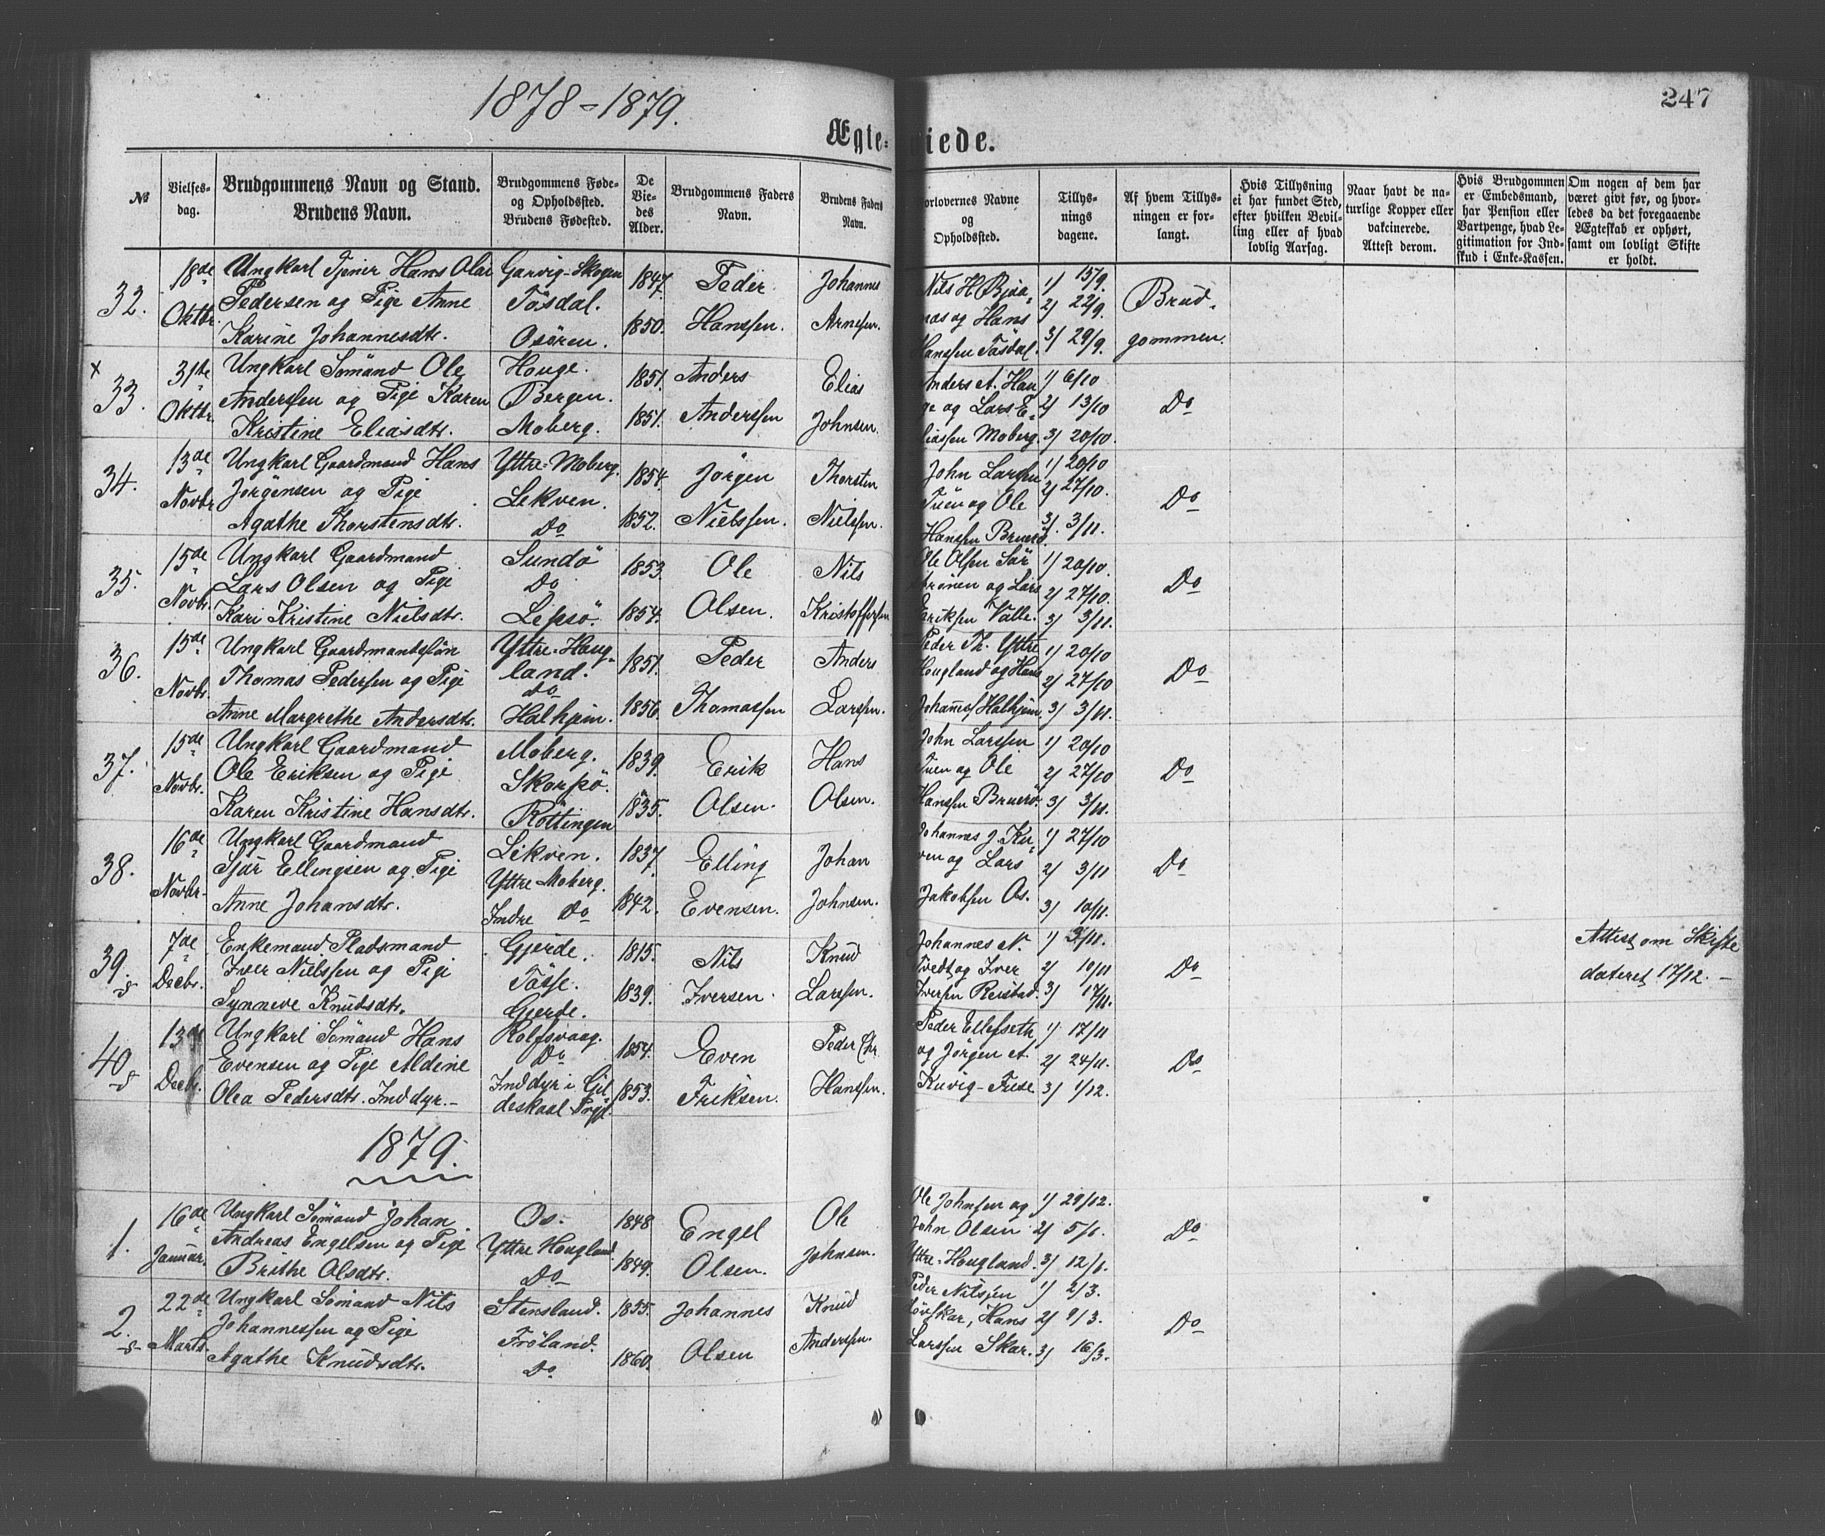 1878-1879.
247
Ægte-
viede.
№
Vielses-
dag.
Brudgommens Navn og Stand.
Brudens Navn.
Brudgommens Føde-
og Opholdssted.
Brudens Fødested.
De
Vie-
des
Alder.
Brudgommens Faders
Navn.
Brudens Faders
Navn.
orlovernes Navne
og
Opholdssted.
Tillys-
nings
dagene.
Af hvem Tillys-
ningen er for-
langt.
Hvis Tillysning
ei har fundet Sted,
efter hvilken Bevil-
ling eller af hvad
lovlig Aarsag.
Naar havt de na-
turlige Kopper eller
vakcinerede.
Attest derom.
Hvis Brudgommen
er Embedsmand,
har Pension eller
Vartpenge, hvad Le-
gitimation for Ind-
skud i Enke-Kassen.
Om nogen af dem har
været givt før, og hvor-
ledes da det foregaaende
Ægteskab er ophørt,
samt om lovligt Skifte
er holdt.
32.
18de
Oktbr.
Ungkarl Tjener Hans Olai
Pedersen og Pige Anne
Karine Johannesdtr.
Garvig-Skogen
Tøsdal.
Osøren.
1847.
1850.
Peder
Hanssen.
Johannes
Arnesen.
Nils H. Bjøa-
næs og Hans
Hanssen Tøsdal.
1) 15/9.
2) 22/9.
3) 29/9.
Brud-
gommen.
x
33.
31te
Oktbr.
Ungkarl Sømand Ole
Anderssen og Pige Karen
Kristine Eliasdtr.
Houge.
Bergen.
Moberg.
1851.
1851.
Anders
Anderssen
Elias
Johnsen.
Anders A. Hau
ge og Lars E-
liassen Moberg.
1) 6/10
2) 13/10
3) 20/10.
Do
34.
13de
Novbr.
Ungkarl Gaardmand Hans
Jørgensen og Pige
Agathe Thorstensdtr.
Yttre-Moberg.
Lekven.
Do
1854.
1852.
Jørgen
Nielssen.
Thorsten
Nielssen.
John Larssen
Tuen og Ole
Hanssen Bruerø.
1) 20/10
2) 27/10.
3) 3/11.
Do
35.
15de
Novbr.
Ungkarl Gaardmand
Lars Olsen og Pige
Kari Kristine Nielsdtr.
Sundø
Do
Lepsø.
1853.
1854.
Ole
Olsen.
Nils
Kristoffersen
Ole Olsen Sør
strønen og Lars
Eriksen Valle.
1) 20/10.
2) 27/10.
3) 3/11.
Do
36.
15de
Novbr.
Ungkarl Gaardmandssøn
Thomas Pedersen og Pige
Anne Margrethe Andersdtr.
Yttre-Houg-
land.
Do
Halhjem.
1851.
1856.
Peder
Thomassen
Anders
Larssen.
Peder Th. Yttre
Hougland og Hans
Johannes Halhjem.
1) 20/10
2) 27/10
3) 3/11.
Do
37.
15de
Novbr.
Ungkarl Gaardmand
Ole Eriksen og Pige
Karen Kristine Hansdtr.
Moberg.
Skorpø.
Røttingen
1839.
1835.
Erik
Olsen.
Hans
Olsen.
John Larssen
Tuen og Ole
Hanssen Bruerø.
1) 20/10
2) 27/10
3) 3/11.
Do
38.
16de
Novbr.
Ungkarl Gaardmand
Sjur Ellingsen og Pige
Anne Johansdtr.
Lekven.
Yttre Moberg.
Indre Do
1837.
1842.
Elling
Evensen.
Johan
Johnsen.
Johannes J. Ku-
ven og Lars
Jakobsen Os.
1) 27/10
2) 3/11
3) 10/11.
Do
39.
7de
Decbr.
Enkemand Pladsmand
Iver Nielssen og Pige
Synneve Knudsdtr.
Gjerde.
Tøsse.
Gjerde.
1815.
1839.
Nils
Iversen.
Knud
Larssen.
Johannes N.
Tvedt og Iver
Iversen Reistad.
1) 3/11.
2) 10/11
3) 17/11.
Do
Attest om Skifte
dateret 17/12.
40.
13de
Decbr.
Ungkarl Sømand Hans
Evensen og Pige Aldine
Olea Pedersdtr. Inddyr.
Rolfsvaag.
Do
Inddyr i Gil-
deskaal Prgj.
1854.
1853.
Even
Eriksen.
Peder Chr.
Hanssen.
Peder Ellefseth
og Jørgen A.
Kuvig-Fuse
1) 17/11
2) 24/11.
3) 1/12.
Do
1879.
1.
16de
Januar.
Ungkarl Sømand Johan
Andreas Engelsen og Pige
Brithe Olsdtr.
Os.
Yttre Hougland
Do
1848
1849.
Engel
Olsen.
Ole
Johnsen.
Ole Johnsen og
John Olsen
Yttre-Hougland.
1) 29/12.
2) 5/1.
3) 12/1.
Do
2.
22de
Marts.
Ungkarl Sømand Nils
Johannessen og Pige
Agathe Knudsdtr.
Stensland.
Frøland.
Do
1855.
1860.
Johannes
Olsen
Knud
Anderssen.
Peder Nilssen
Høyskar, Hans
Larssen Skar.
1) 2/3.
2) 9/3.
3) 16/3.
Do